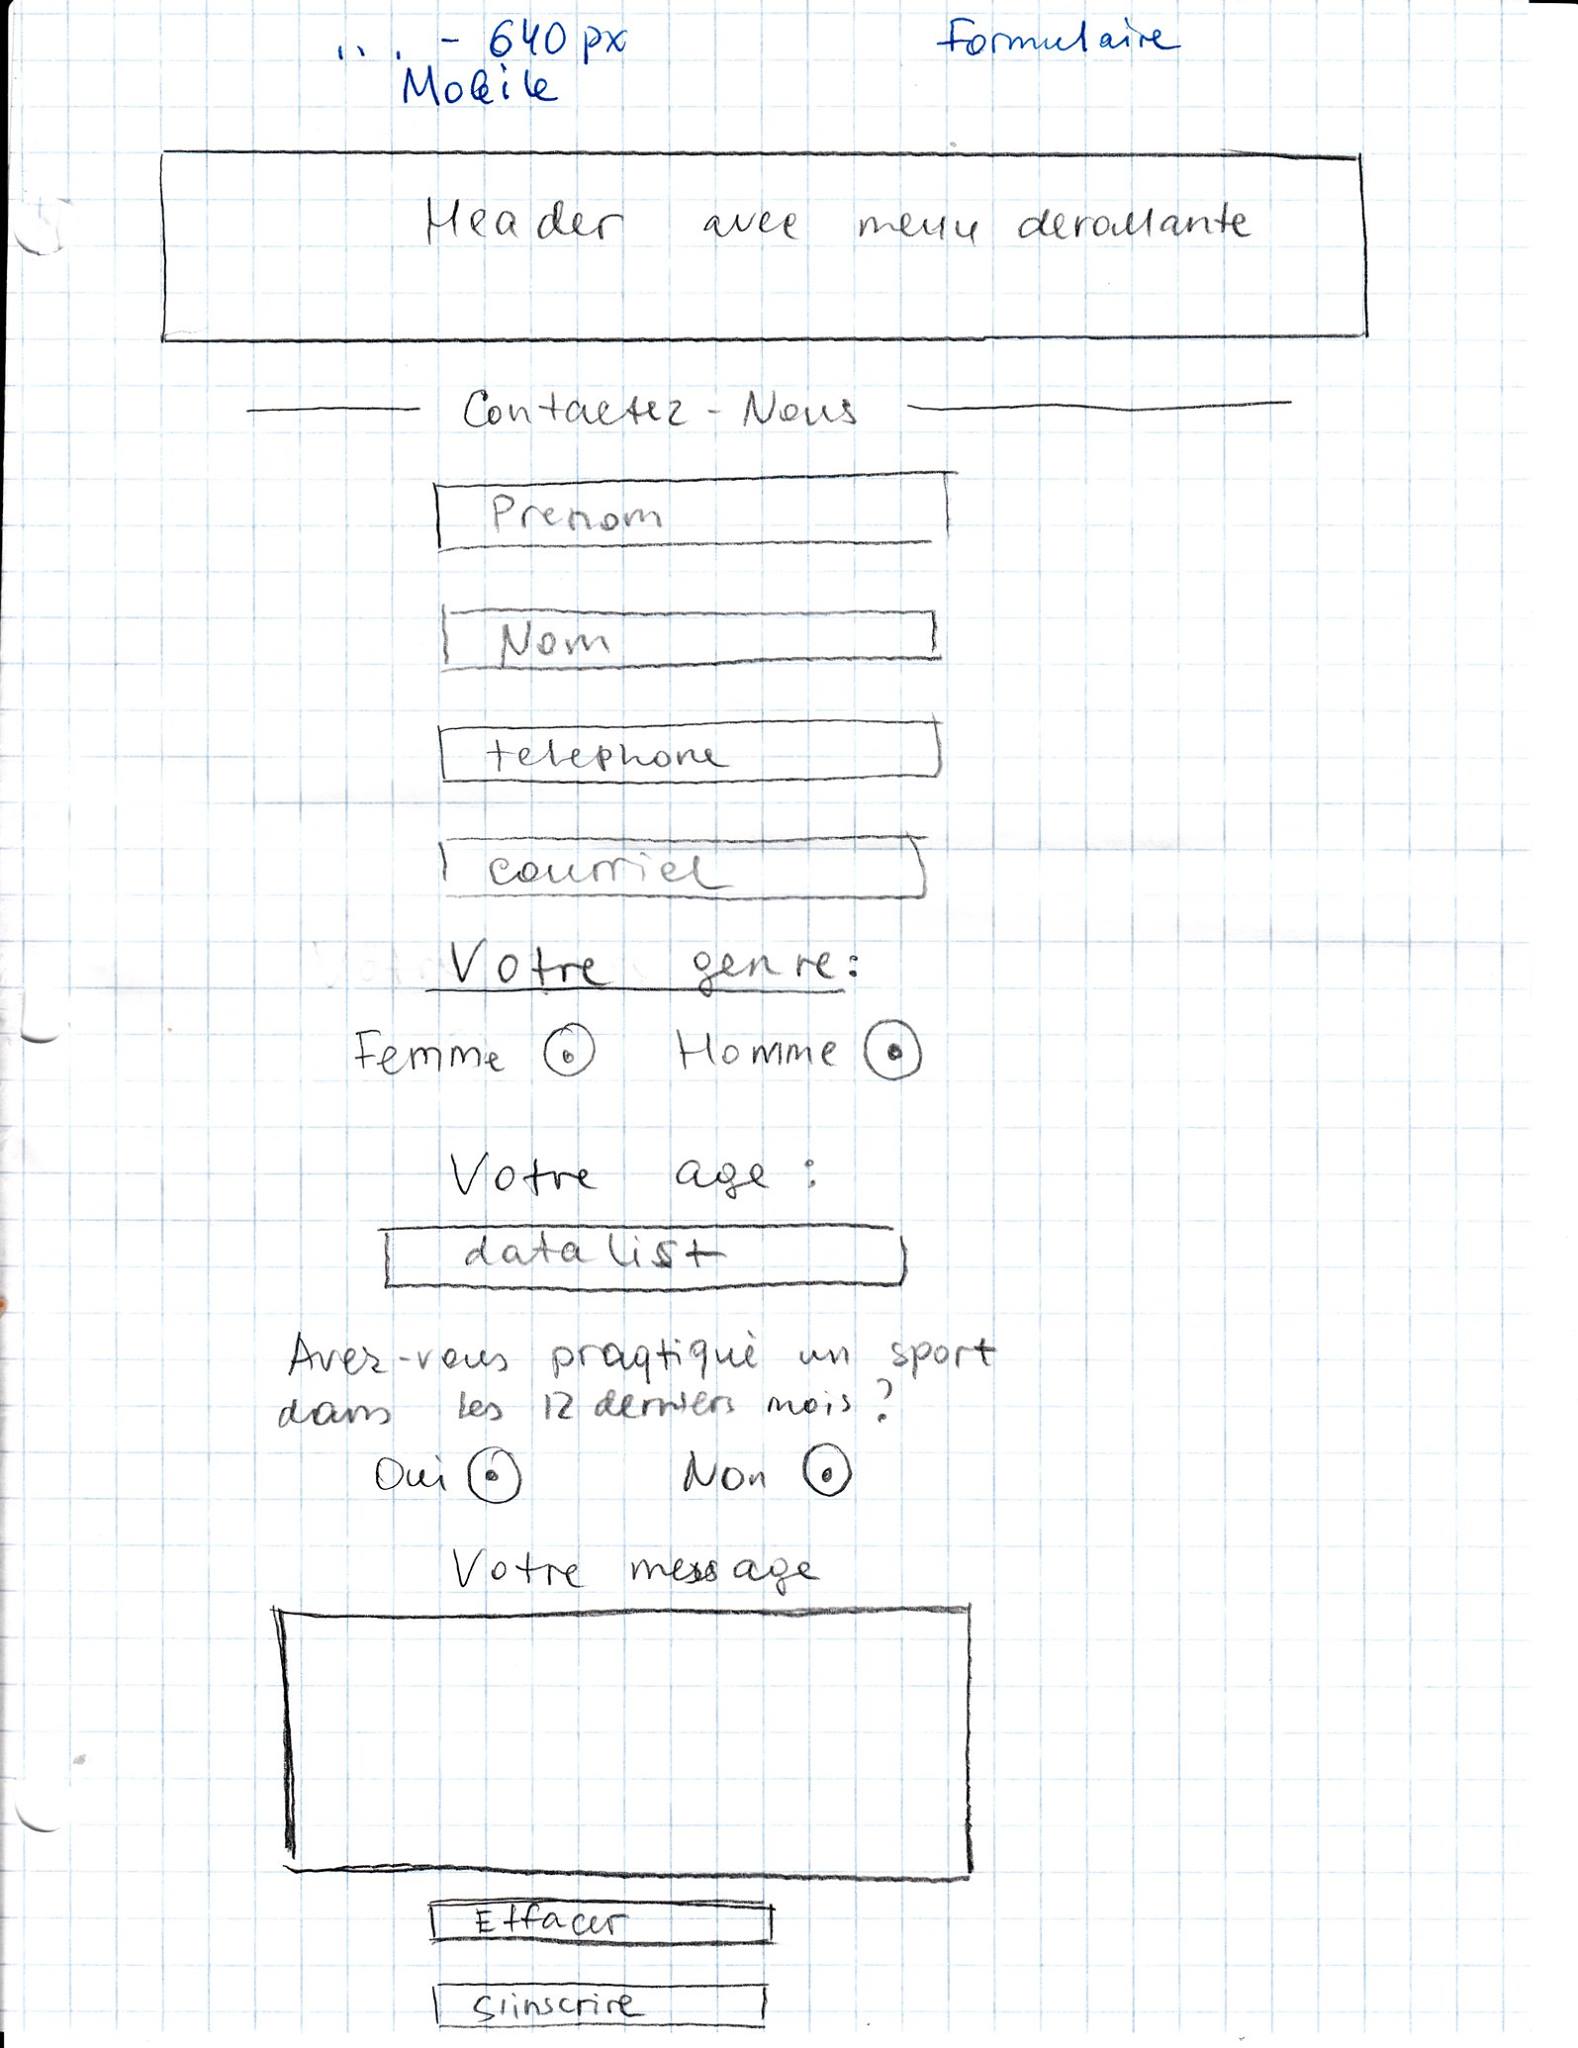 ... - 640px
Mobile
Formulaire
Header avec menu derollante
Contactez-Nous
Prenom
Nom
telephone
courriel
Votre genre:
Femme Homme
Votre age :
datalist
Avez-vous praqtiqué un sport
dans les 12 derniers mois?
Oui Non
Votre message
Effacer
S'inscrire